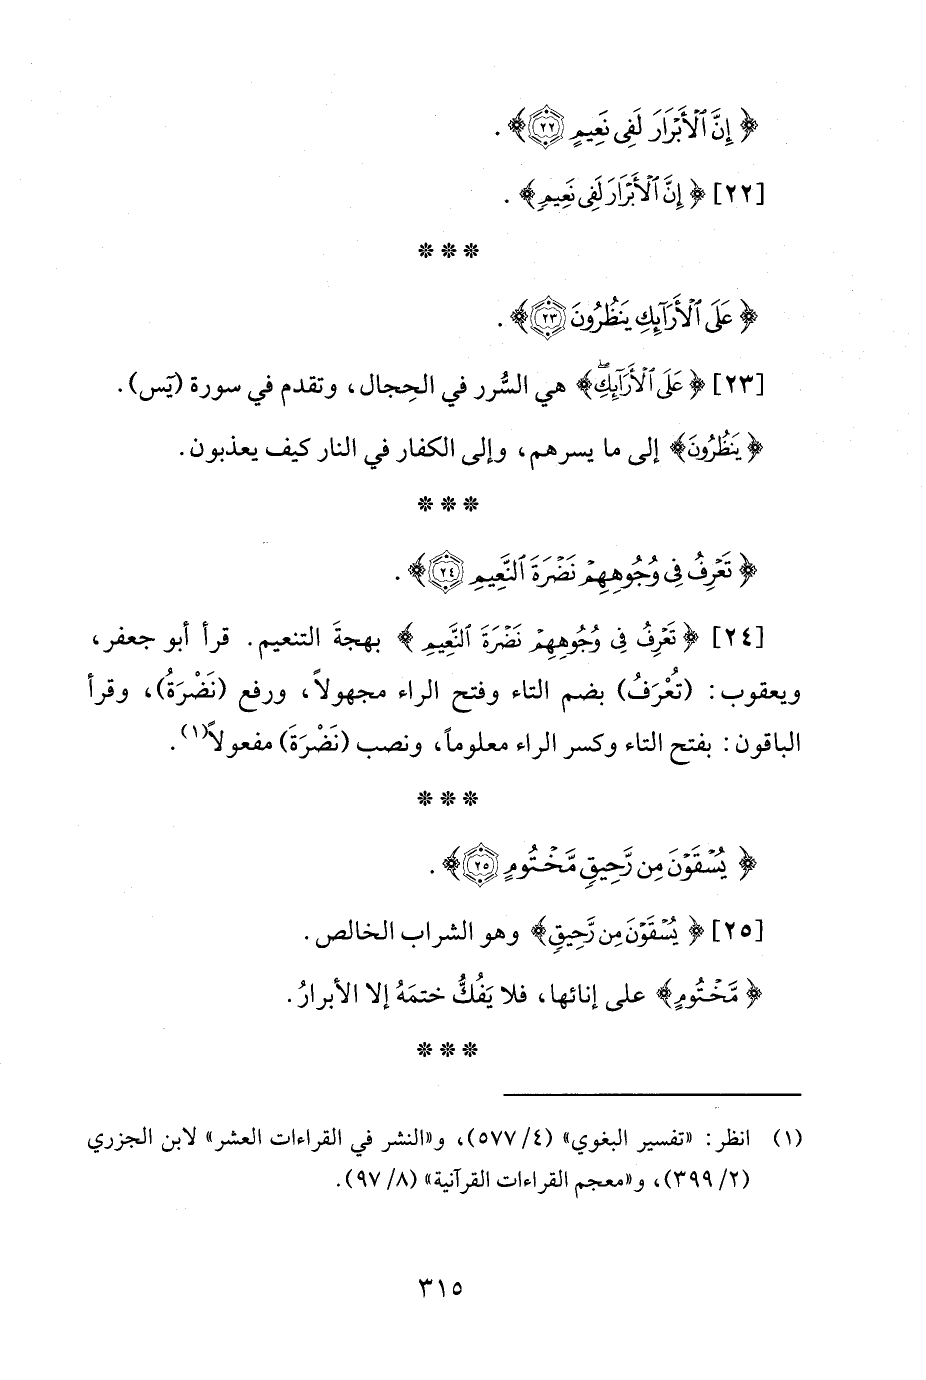 ﴿ إِنَّ ٱلْأَبْرَارَ لَفِى نَعِيمٍ ﴿٢٢﴾ ﴾ .
[٢٢] ﴿ إِنَّ ٱلْأَبْرَارَ لَفِى نَعِيمٍ﴾ .
* * *
﴿ عَلَى ٱلْأَرَآئِكِ يَنظُرُونَ ﴿٢٣﴾ ﴾ .
[٢٣] ﴿ عَلَى ٱلْأَرَآئِكِۖ﴾ هي السُّرر في الحِجال، وتقدم في سورة (يَس).
﴿ يَنظُرُونَ﴾ إلى ما يسرهم، وإلى الكفار في النار كيف يعذبون.
* * *
﴿ تَعْرِفُ فِى وُجُوهِهِمْ نَضْرَةَ ٱلنَّعِيمِ ﴿٢٤﴾ ﴾ .
[٢٤] ﴿ تَعْرِفُ فِى وُجُوهِهِمْ نَضْرَةَ ٱلنَّعِيمِ ﴾ بهجةَ التنعيم. قرأ أبو جعفر،
ويعقوب: (تُعْرَفُ) بضم التاء وفتح الراء مجهولاً، ورفع (نَضْرَةُ)، وقرأ
الباقون: بفتح التاء وكسر الراء معلوماً، ونصب (نَضْرَةَ) مفعولاً(١).
* * *
﴿ يُسْقَوْنَ مِن رَّحِيقٍ مَّخْتُومٍ ﴿٢٥﴾ ﴾ .
[٢٥] ﴿ يُسْقَوْنَ مِن رَّحِيقٍ﴾ وهو الشراب الخالص.
﴿ مَّخْتُومٍ﴾ على إنائها، فلا يَفُكُّ ختمَهُ إلا الأبرارُ.
* * *
(١) انظر: «تفسير البغوي» (٤/ ٥٧٧)، و«النشر في القراءات العشر» لابن الجزري
(٢/ ٣٩٩)، و«معجم القراءات القرآنية» (٨/ ٩٧).
٣١٥